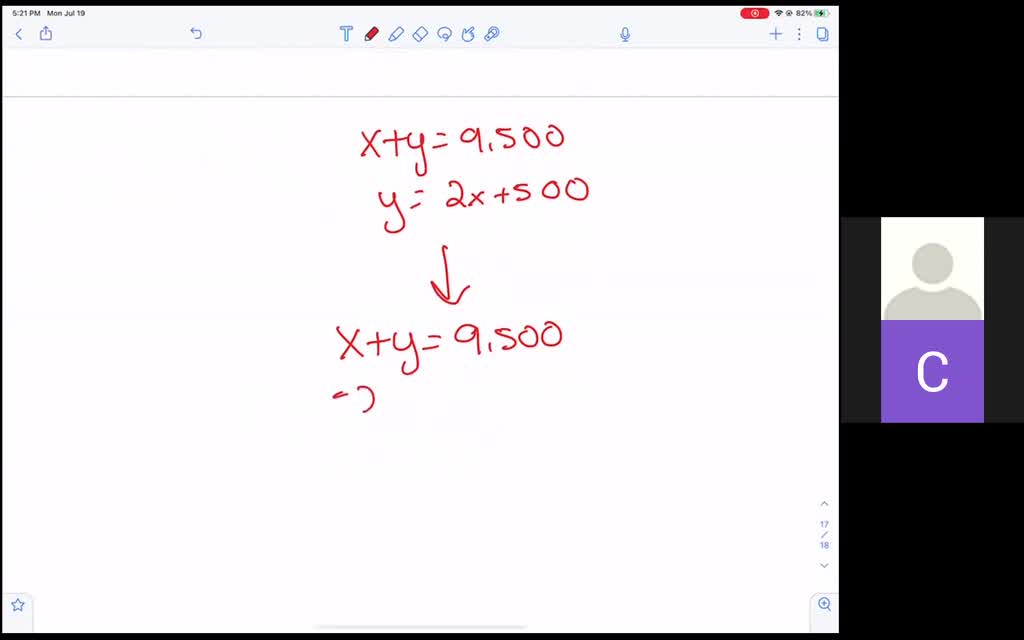 5:21 PM Mon Jul 19
82%
T
x+y= 9,500
y= 2x+500
x+y= 9,500
C
17
/
18